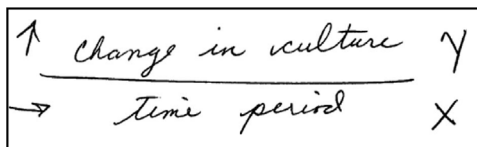 ↑ change in culture Y
→ time period X